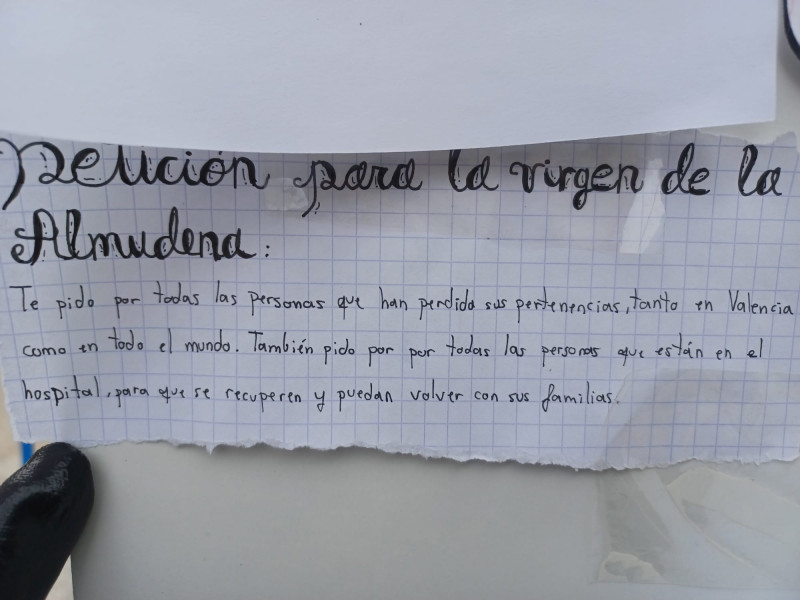 Petición para la virgen de la
Almudena:
Te pido por todas las personas que han perdido sus pertenencias, tanto en Valencia
como en todo el mundo. También pido por por todas las personas que están en el
hospital, para que se recuperen y puedan volver con sus familias.